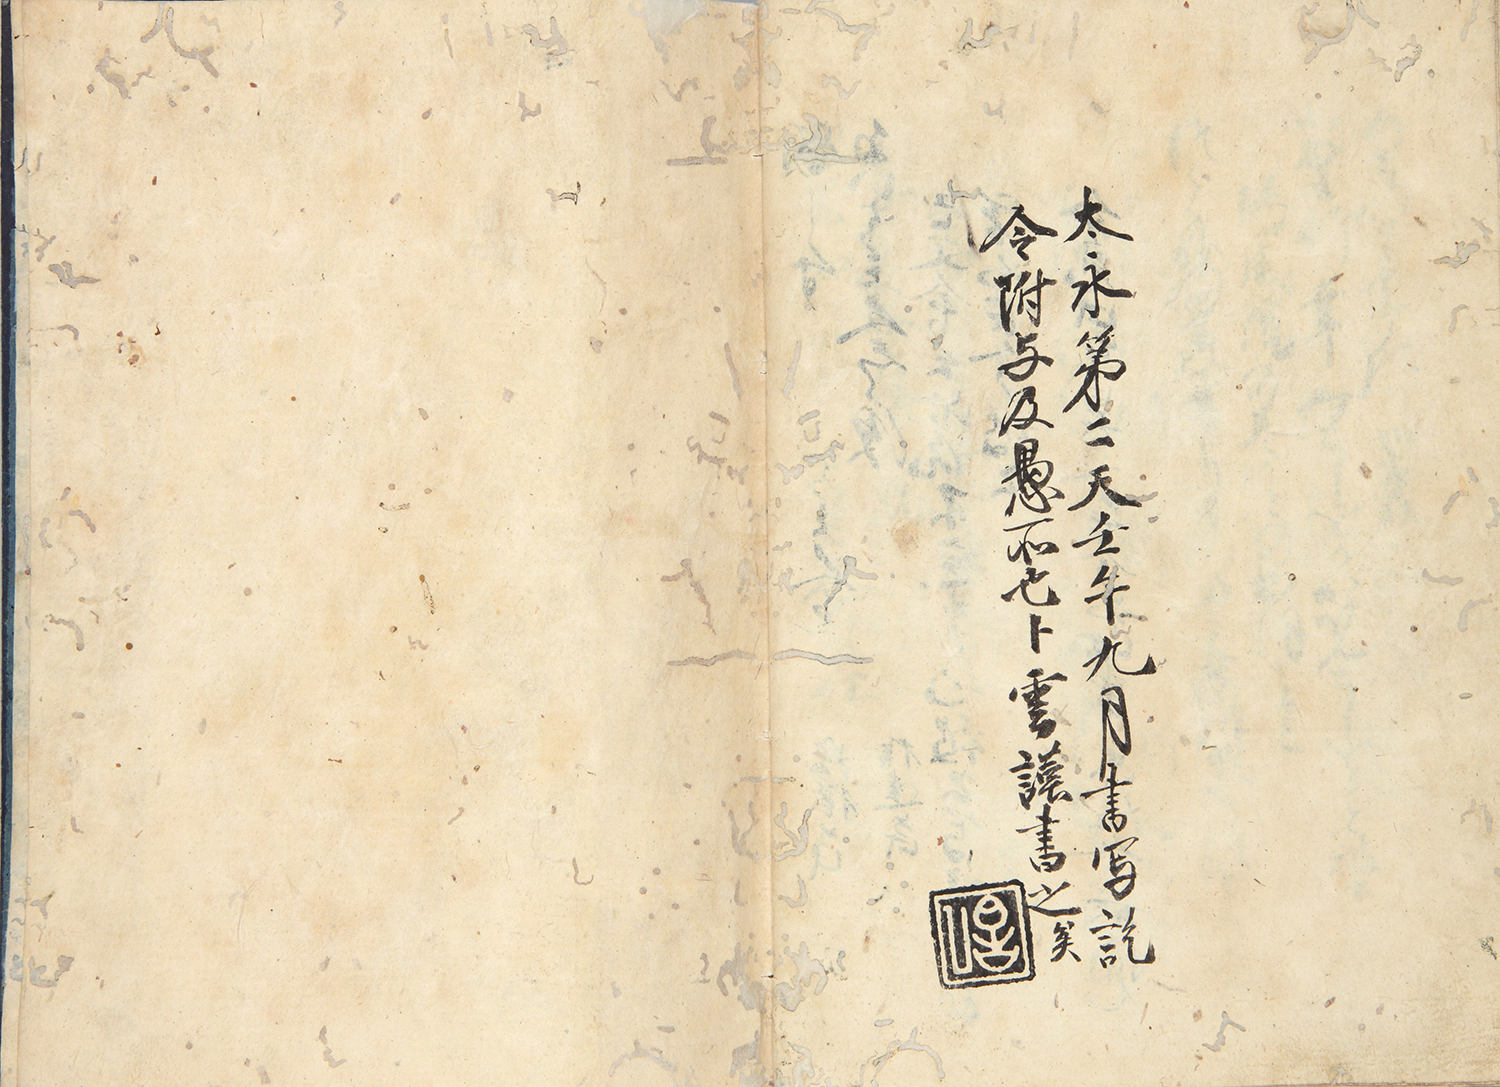 太永第二天壬午九月書写訖
令附与及愚而已卜雲謹書之矣